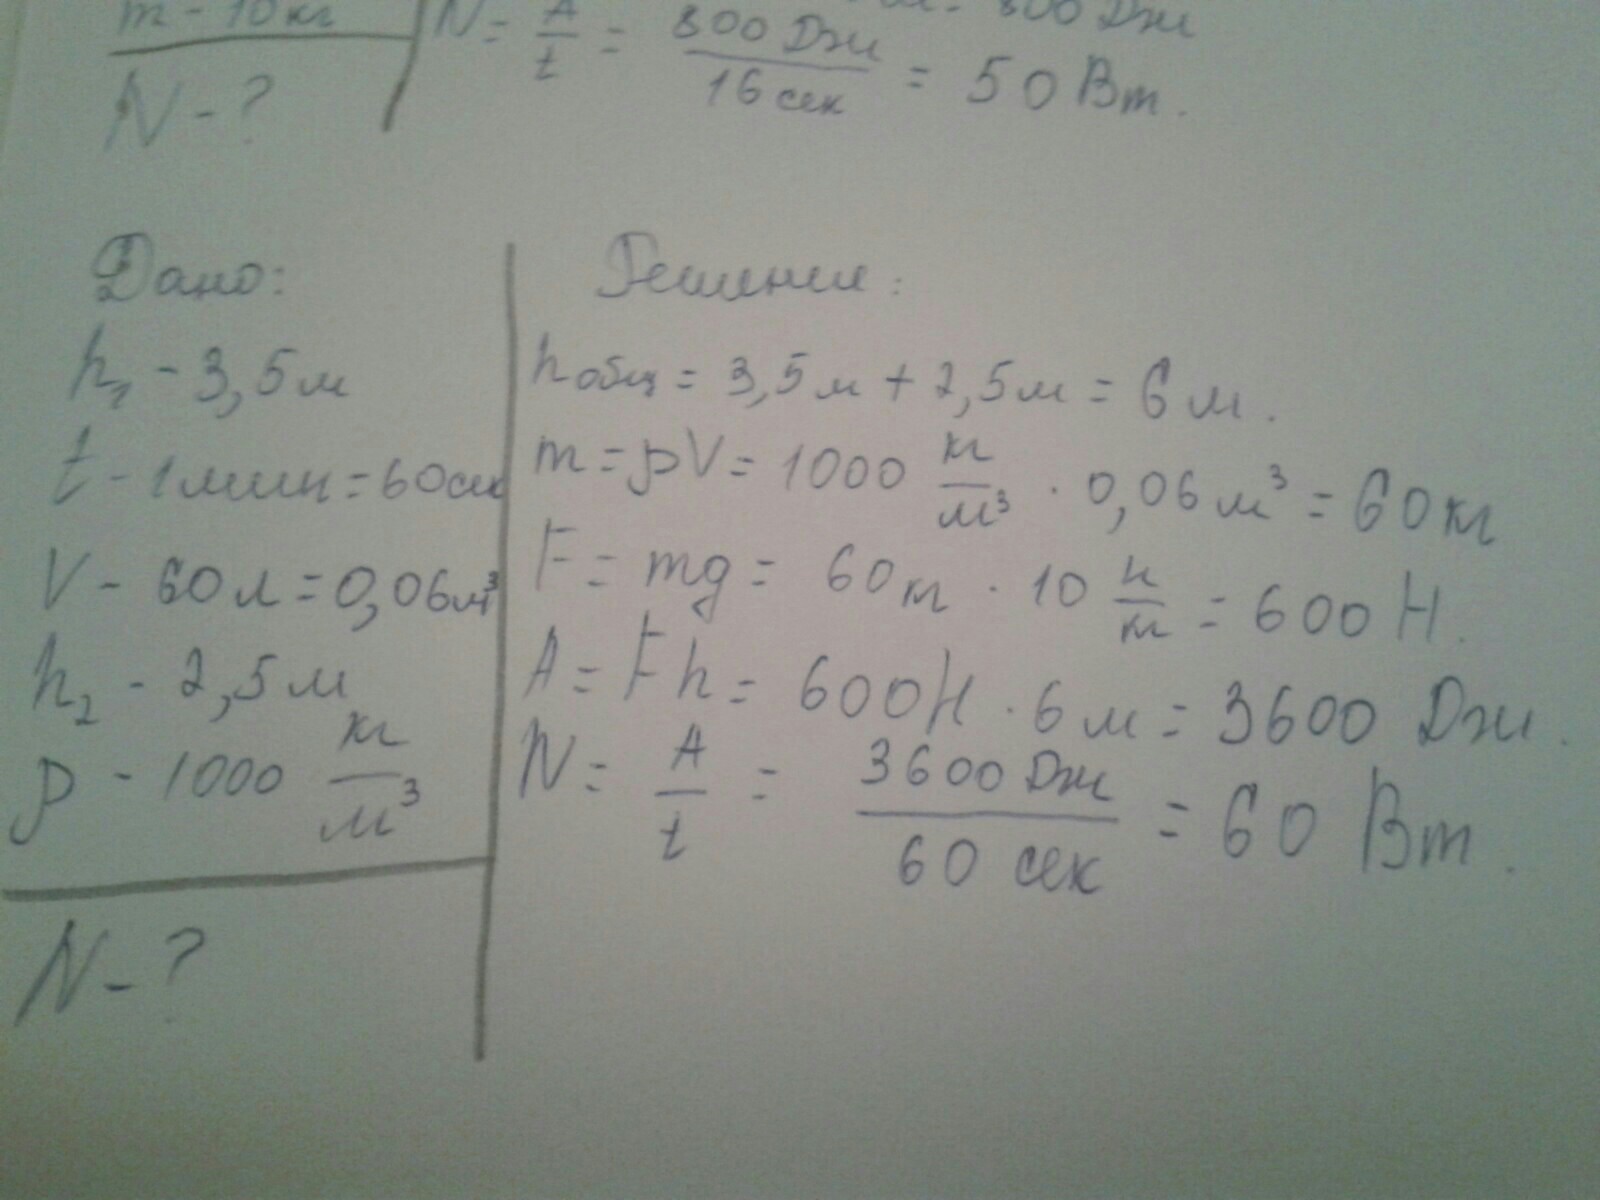 m - 10 кг
N = A/t = 800 Дж / 16 сек = 50 Вт.
800 Дж
N - ?
Дано:
h₁ - 3,5 м
t - 1 мин = 60 сек
V - 60 л = 0,06 м³
h₂ - 2,5 м
ρ - 1000 кг/м³
N - ?
Решение:
h общ = 3,5 м + 2,5 м = 6 м.
m = ρV = 1000 кг/м³ · 0,06 м³ = 60 кг
F = mg = 60 кг · 10 н/кг = 600 Н.
A = Fh = 600 Н · 6 м = 3600 Дж.
N = A/t = 3600 Дж / 60 сек = 60 Вт.